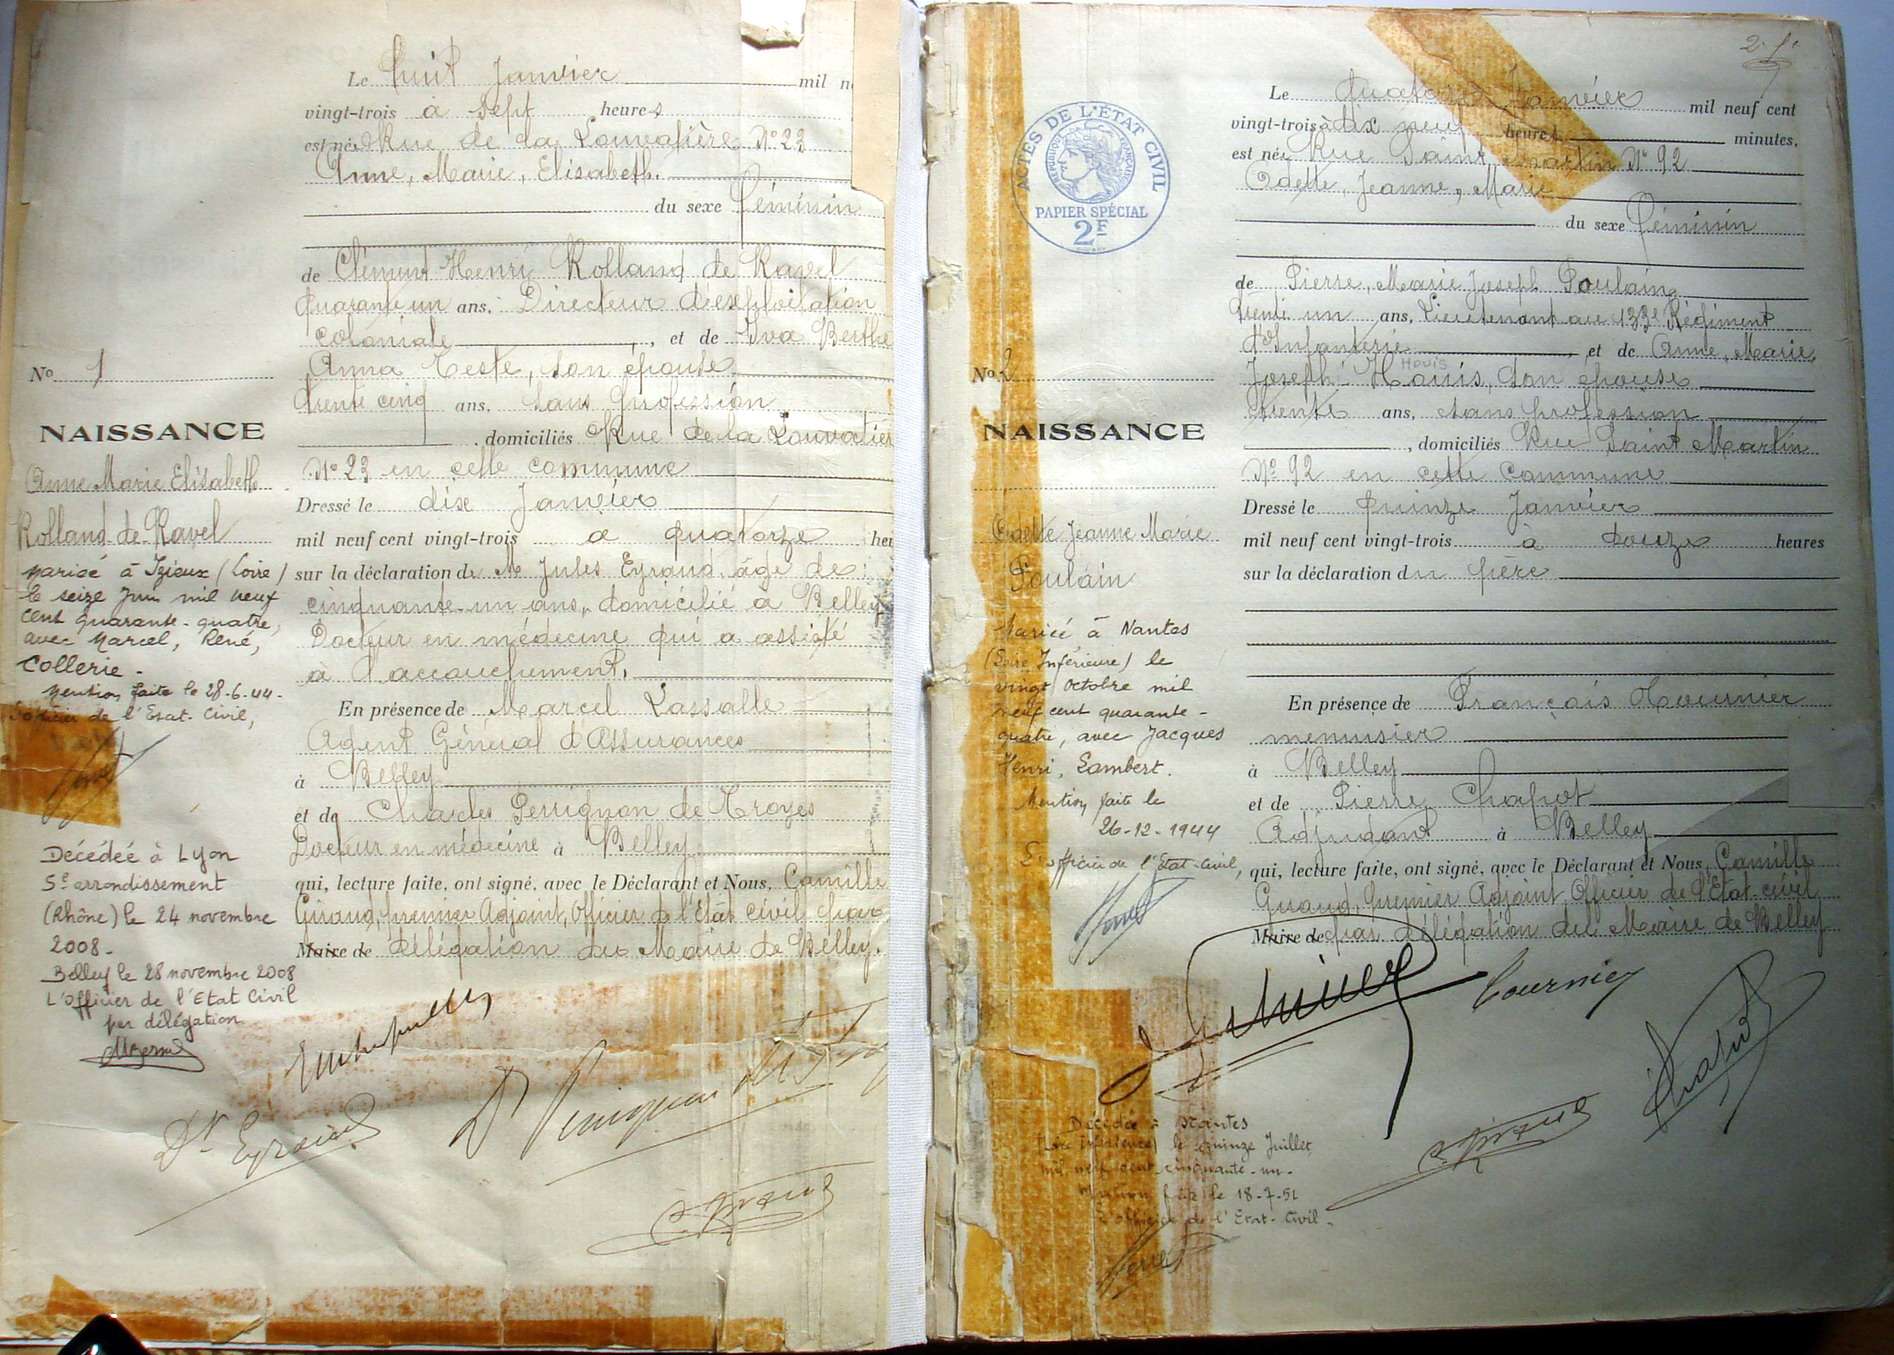 Le huit Janvier mil n
vingt-trois à sept heures
est née Rue de la Louvatière N° 23
Anne, Marie, Elisabeth.
du sexe féminin
de Clément Henri Rolland de Ravel
quarante un ans, Directeur d'exploitation
coloniale, et de Iva Berthe
Anna Teste, son épouse
trente cinq ans, sans profession
, domiciliés Rue de la Louvatièr
N° 23 en cette commune
Dressé le dix Janvier
mil neuf cent vingt-trois à quatorze heu
sur la déclaration de M Jules Eyraud, âgé de
cinquante un ans, domicilié à Belley
Docteur en médecine qui a assisté
à l'accouchement.
En présence de Marcel Lassalle
Agent Général d'Assurances
à Belley
et de Charles Perrignon de Troyes
Docteur en médecine à Belley
qui, lecture faite, ont signé, avec le Déclarant et Nous, Camille
Giraud, premier Adjoint, Officier de l'état civil par
Maire de délégation du Maire de Belley.
N° 1
NAISSANCE
Anne Marie Elisabeth
Rolland de Ravel
Mariée à Izieux (Loire)
le seize Juin mil neuf
cent quarante-quatre,
avec Marcel, René,
Collerie.
Mention faite le 28-6-44.
L'officier de l'Etat-Civil,
Décédée à Lyon
5e arrondissement
(Rhône) le 24 novembre
2008.
Belley le 28 novembre 2008
L'Officier de l'Etat Civil
par délégation
Dr Eyraud
Dr Perrignon de Troy
C. Giraud
2. f.
ACTES DE L'ÉTAT CIVIL
REPUBLIQUE FRANÇAISE
PAPIER SPÉCIAL
2F
Le Quatorze Janvier mil neuf cent
vingt-trois à dix neuf heures minutes,
est née Rue Saint Martin N° 92
Odette, Jeanne, Marie
du sexe féminin
de Pierre, Marie Joseph Poulain
trente un ans, Lieutenant au 133e Régiment
d'Infanterie, et de Anne, Marie,
Houis
Joseph Houis, son épouse
trente ans, sans profession
, domiciliés Rue Saint Martin
N° 92 en cette commune
Dressé le quinze Janvier
mil neuf cent vingt-trois à douze heures
sur la déclaration du père
En présence de François Tournier
menuisier
à Belley
et de Pierre Chapot
Adjudant à Belley
qui, lecture faite, ont signé, avec le Déclarant et Nous, Camille
Giraud, premier Adjoint Officier de l'Etat civil
Maire de par délégation du Maire de Belley
N° 2
NAISSANCE
Odette Jeanne Marie
Poulain
Mariée à Nantes
(Loire Inférieure) le
vingt Octobre mil
neuf cent quarante-
quatre, avec Jacques
Henri, Lambert.
Mention faite le
26-12-1944
L'officier de l'Etat-Civil,
Tournier
Chapot
C. Giraud
Décédée à Nantes
(Loire Inférieure) le quinze Juillet
mil neuf cent cinquante-un.
Mention faite le 18-7-51
L'officier de l'Etat-Civil.